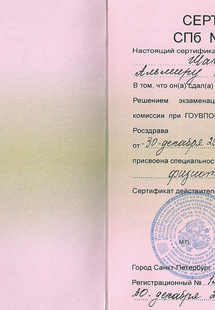 СЕРТ
СПб №
Настоящий сертифика
Шап
Альмиру
В том, что он(а) сдал(а)
Решением экзаменац
комиссии при ГОУВПО
Росздрава
от «30» декабря 20
присвоена специальнос
физиот
Сертификат действителе
М.П.
Город Санкт-Петербург
Регистрационный №
30. декабря 2